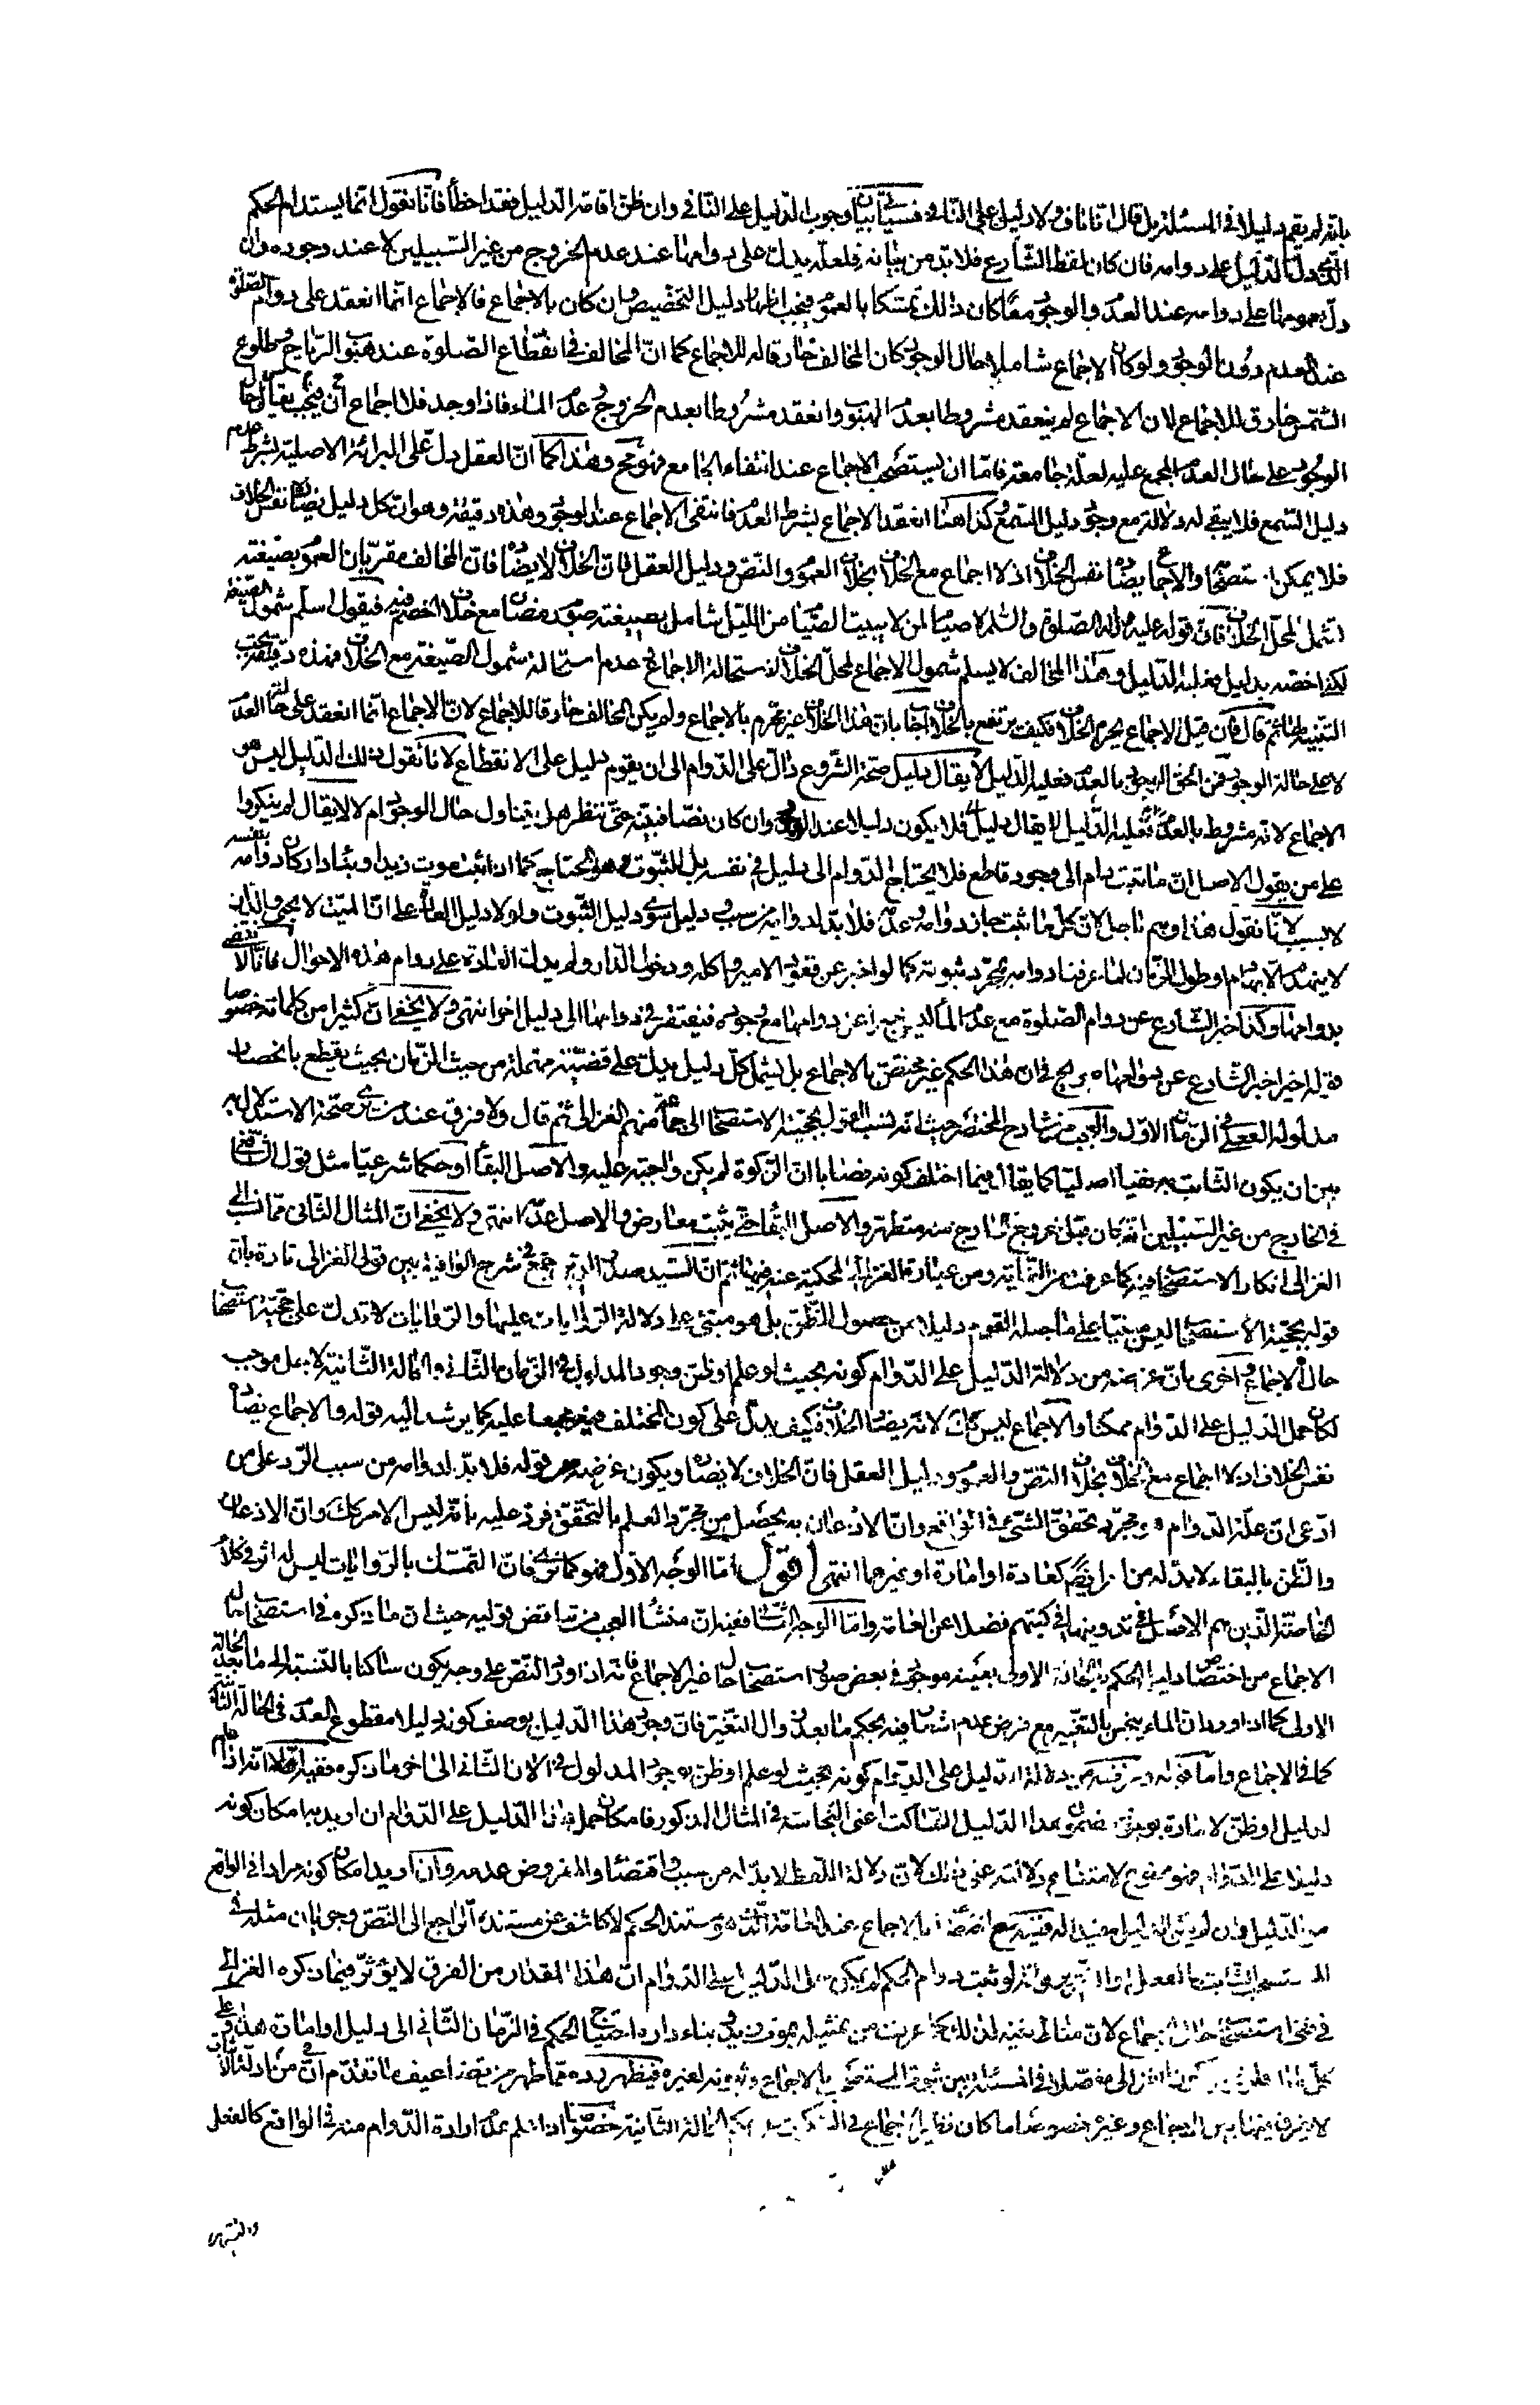 بانه لم يقم دليلا في المسئلة بل قال انا ناف ولا دليل على النافي فسيأتي بيان وجوب الدليل على النافي وان ظن اقامة الدليل فقد اخطأ فانا نقول انما يستدام الحكم
الذي دل الدليل على دوامه فان كان لفظ الشارع فلا بد من بيانه فلعله يدل على دوامها عند عدم الخروج من غير السبيلين لا عند وجوده وان
دل بعمومها على دوامه عند العدم والوجود معا كان ذلك تمسكا بالعموم فيجب اظهار دليل التخصيص وان كان بالاجماع فالاجماع انما انعقد على دوام الصلوة
عند العدم دون الوجود ولو كان الاجماع شاملا حال الوجود كان المخالف خارقا له للاجماع كما ان المخالف في انقطاع الصلوة عند هبوب الرياح وطلوع
الشمس خارق للاجماع لان الاجماع لم ينعقد مشروطا بعدم الهبوب وانعقد مشروطا بعدم الخروج وعدم الماء فاذا وجد فلا اجماع فيجب ان يقاس حال
الوجود على حال العدم المجمع عليه لعلة جامعة فاما ان يستصحب الاجماع عند انتفاء الجامع فهو مح وهذا كما ان العقل دل على البرائة الاصلية بشرط عدم
دليل السمع فلا يبقى له دلالة مع وجود دليل السمع وكذا هنا انعقد الاجماع بشرط العدم فانتفى الاجماع عند الوجود وهذه دقيقة وهو ان كل دليل يضاده نفس الخلاف
فلا يمكن استصحابه والاجماع يضاده نفس الخلاف اذ لا اجماع مع الخلاف بخلاف العموم والنص ودليل العقل فان الخلاف لا يضاده فان المخالف مقر بان العموم بصيغته
شامل لمحل الخلاف فان قوله عليه وآله الصلوة والسلام لا صيام لمن لا يبيت الصيام من الليل شامل بصيغته صوم رمضان مع خلاف الخصم فيه فيقول اسلم شمول الصيغة
لكني اخصه بدليل فعليه الدليل وهذا المخالف لا يسلم شمول الاجماع لمحل الخلاف لاستحالة الاجماع مع عدم استحالة شمول الصيغة مع الخلاف فهذه دقيقة يجب
التنبيه لها ثم قال فان قيل الاجماع يحرم الخلاف فكيف يرتفع بالخلاف اجاب بان هذا الخلاف غير محرم بالاجماع ولم يكن المخالف خارقا للاجماع لان الاجماع انما انعقد على حالة العدم
لا على حالة الوجود فمن الحق الوجود بالعدم فعليه الدليل لا يقال دليل صحة الشروع دال على الدوام الى ان يقوم دليل على الانقطاع لانا نقول ذلك الدليل ليس هو
الاجماع لانه مشروط بالعدم فلا يكون دليلا عند الوجود وان كان نصا فبينه حتى ننظر هل يتناول حال الوجود ام لا لا يقال لم ينكروا
على من يقول الاصل ان ما ثبت دام الى وجود قاطع فلا يحتاج الدوام الى دليل في نفسه بل الثبوت هو المحتاج كما اذا ثبت موت زيد او بناء دار كان دوامه بنفسه
لا بسبب لانا نقول هذا وهم باطل لان كل ما ثبت جاز دوامه وعدمه فلا بد لدوامه من سبب ودليل سوى دليل الثبوت ولولا دليل العادة على ان الميت لا يحيى والدار
لا ينهدم الا بهادم او طول الزمان لما عرفنا دوامه بمجرد ثبوته كما لو اخبر عن قعود الامير واكله ودخول الدار ولم يدل العادة على دوام هذه الاحوال فانا لا نقضي
بدوامها وكذا خبر الشارع عن دوام الصلوة مع عدم الماء ليس خبرا عن دوامها مع وجوده فيفتقر في دوامها الى دليل اخر انتهى ولا يخفى ان كثيرا من كلماته خصوصا
قوله اخيرا خبر الشارع عن دوامها صريح في ان هذا الحكم غير مختص بالاجماع بل يشمل كل دليل يدل على قضية مهملة من حيث الزمان بحيث يقطع بانحصار
مدلوله الفعلي في الزمان الاول والعجب من شارح المختصر حيث انه نسب القول بحجية الاستصحاب الى جماعة منهم الغزالي ثم قال ولا فرق عند من يرى صحة الاستدلال به
بين ان يكون الثابت به نفيا اصليا كما يقال فيما اختلف كونه نصابا ان الزكوة لم يكن واجبة عليه والاصل البقاء او حكما شرعيا مثل قول الشافعي
في الخارج من غير السبيلين انه كان قبل خروج الخارج منه متطهرا والاصل البقاء حتى يثبت معارض والاصل عدمه انتهى ولا يخفى ان المثال الثاني مما نسب الى
الغزالي انكار الاستصحاب فيه كما عرفت من النهاية ومن عبارة الغزالي المحكية عنه فيها ثم ان السيد صدر الدين جمع في شرح الوافية بين قولي الغزالي تارة بان
قوله بحجية الاستصحاب ليس مبنيا على ما جعله القوم دليلا من حصول الظن بل هو مبني على دلالة الروايات عليها والروايات لا تدل على حجية استصحاب
حال الاجماع واخرى بان غرضه من دلالة الدليل على الدوام كونه بحيث لو علم او ظن وجود المدلول في الزمان الثاني والحالة الثانية لاجل موجب
لكان حمل الدليل على الدوام ممكنا والاجماع ليس كذلك لانه يضاد الخلاف فكيف يدل على كون المختلف فيه مجمعا عليه كما يرشد اليه قوله والاجماع يضاده
نفس الخلاف اذ لا اجماع مع الخلاف بخلاف النص والعموم ودليل العقل فان الخلاف لا يضاده ويكون غرضه من قوله فلا بد لدوامه من سبب الرد على من
ادعى ان علة الدوام هو مجرد تحقق الشيء في الواقع وان الاذعان به يحصل من مجرد العلم بالتحقق فرد عليه بانه ليس الامر كذلك وان الاذعان
والظن بالبقاء لا بد له من امر ايضا كعادة او امارة او غيرهما انتهى اقول اما الوجه الاول فهو كما ترى فان التمسك بالروايات ليس له اثر في كلام
الخاصة الذين هم الاصل في تدوينها في كتبهم فضلا عن العامة واما الوجه الثاني ففيه ان منشأ العجب من تناقض قوليه حيث ان ما ذكره في استصحاب حال
الاجماع من اختصاص دليل الحكم بالحالة الاولى بعينه موجود في بعض صور استصحاب حال غير الاجماع فانه اذا ورد النص على وجه يكون ساكتا بالنسبة الى ما بعد الحالة
الاولى كما اذا ورد ان الماء ينجس بالتغير مع فرض عدم اشعار فيه بحكم ما بعد زوال التغير فان وجود هذا الدليل بوصف كونه دليلا مقطوع العدم في الحالة الثانية
كما في الاجماع واما قوله وغرضه من دلالة الدليل على الدوام كونه بحيث لو علم او ظن وجود المدلول في الآن الثاني الى اخر ما ذكره ففيه انه اذا علم
لدليل او ظن لامارة بوجود مضمون هذا الدليل الساكت اعني النجاسة في المثال المذكور فامكان حمل هذا الدليل على الدوام ان اريد به امكان كونه
دليلا على الدوام فهو ممنوع لامتناع دلالته على ذلك لان دلالة اللفظ لا بد له من سبب واقتضاء والمفروض عدمه وان اريد امكان كونه مرادا في الواقع
من الدليل وان لم يكن الدليل مفيدا له ففيه مع اختصاصه بالاجماع عند العامة الذي هو مستند الحكم لا كاشف عن مستنده الراجع الى النص وجريان مثله في
المستصحب الثابت بالفعل او التقرير فانه لو ثبت دوام الحكم لم يمكن حمل الدليل على الدوام ان هذا المقدار من الفرق لا يؤثر فيما ذكره الغزالي
في نفي استصحاب حال الاجماع لان مناط نفيه لذلك كما عرفت من تمثيله بموت زيد وبناء دار احتياج الحكم في الزمان الثاني الى دليل او امارة هذا وعلى
كل حال فلو فرض كون الغزالي مفصلا في المسئلة بين ثبوت المستصحب بالاجماع وثبوته لغيره فيظهر رده مما ظهر من تضاعيف ما تقدم من ان ادلة الاثبات
لا يفرق فيها بين الاجماع وغيره خصوصا ما كان نظير الاجماع في السكوت عن حكم الحالة الثانية خصوصا اذا علم عدم ارادة الدوام منه في الواقع كالفعل
والتقرير